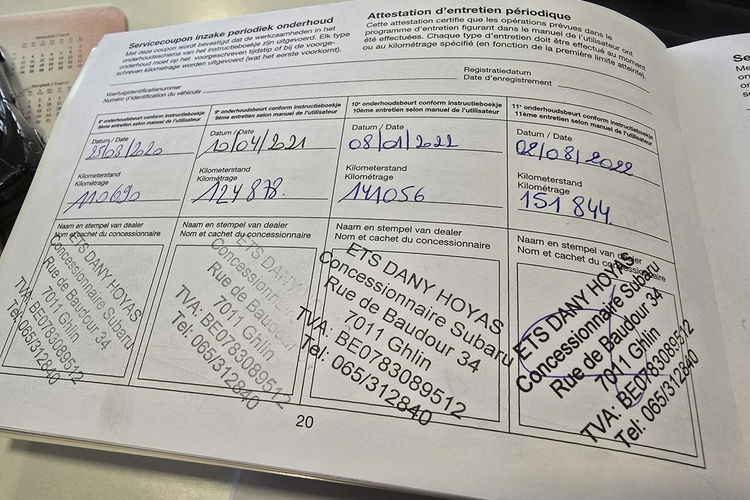 Servicecoupon inzake periodiek onderhoud
Met deze coupon wordt bevestigd dat de werkzaamheden in het
onderhoudsthema van het instructieboekje zijn uitgevoerd. Elk type
onderhoud moet op het voorgeschreven tijdstip of bij de voorge-
schreven kilometrage worden uitgevoerd (wat het eerste voorkomt).
Attestation d'entretien périodique
Cette attestation certifie que les opérations prévues dans le
programme d'entretien figurant dans le manuel de l'utilisateur ont
été effectuées. Chaque type d'entretien doit être effectué au moment
ou au kilométrage spécifié (en fonction de la première limite atteinte).
Voertuigidentificatienummer
Numéro d'identification du véhicule
Registratiedatum
Date d'enregistrement
8e onderhoudsbeurt conform instructieboekje
8ème entretien selon manuel de l'utilisateur
Datum / Date
25/08/2020
Kilometerstand
Kilométrage
110690
Naam en stempel van dealer
Nom et cachet du concessionnaire
ETS DANY HOYAS
Concessionnaire Subaru
Rue de Baudour 34
7011 Ghlin
TVA: BE0783089512
Tel: 065/312840
9e onderhoudsbeurt conform instructieboekje
9ème entretien selon manuel de l'utilisateur
Datum / Date
10/04/2021
Kilometerstand
Kilométrage
124878.
Naam en stempel van dealer
Nom et cachet du concessionnaire
ETS DANY
Concessionnaire
Rue de Baudour
7011 Ghlin
TVA: BE0783089512
Tel: 065/312840
10e onderhoudsbeurt conform instructieboekje
10ème entretien selon manuel de l'utilisateur
Datum / Date
08/01/2022
Kilometerstand
Kilométrage
141056
Naam en stempel van dealer
Nom et cachet du concessionnaire
ETS DANY HOYAS
Concessionnaire Subaru
Rue de Baudour 34
7011 Ghlin
TVA: BE0783089512
Tel: 065/312840
11e onderhoudsbeurt conform instructieboekje
11ème entretien selon manuel de l'utilisateur
Datum / Date
02/08/2022
Kilometerstand
Kilométrage
151844
Naam en stempel van dealer
Nom et cachet du concessionnaire
ETS DANY HOYAS
Concessionnaire Subaru
Rue de Baudour 34
7011 Ghlin
TVA: BE0783089512
Tel: 065/312840
20